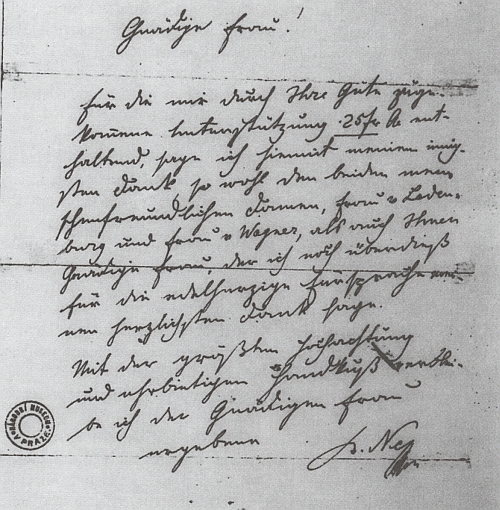 Gnädige Frau!
Für die mir durch Ihre Güte zuge-
kommene Unterstützung 25 fr ent-
haltend, sage ich hiemit meinen innig-
sten Dank so wohl den beiden men-
schenfreundlichen Damen, Frau v Leden-
burg und Frau v Wagner, als auch Ihnen
Gnädige Frau, der ich noch überdieß
für die edelherzige Fürsprache mei-
nen herzlichsten Dank sage.
Mit der größten Hochachtung
und ehrbietigen Handkuß verblei-
be ich der Gnädigen Frau
ergebene
V PRAZE